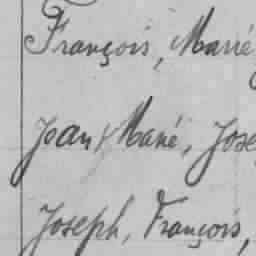 François, Marie
Jean, Marie, Jose
Joseph, François,